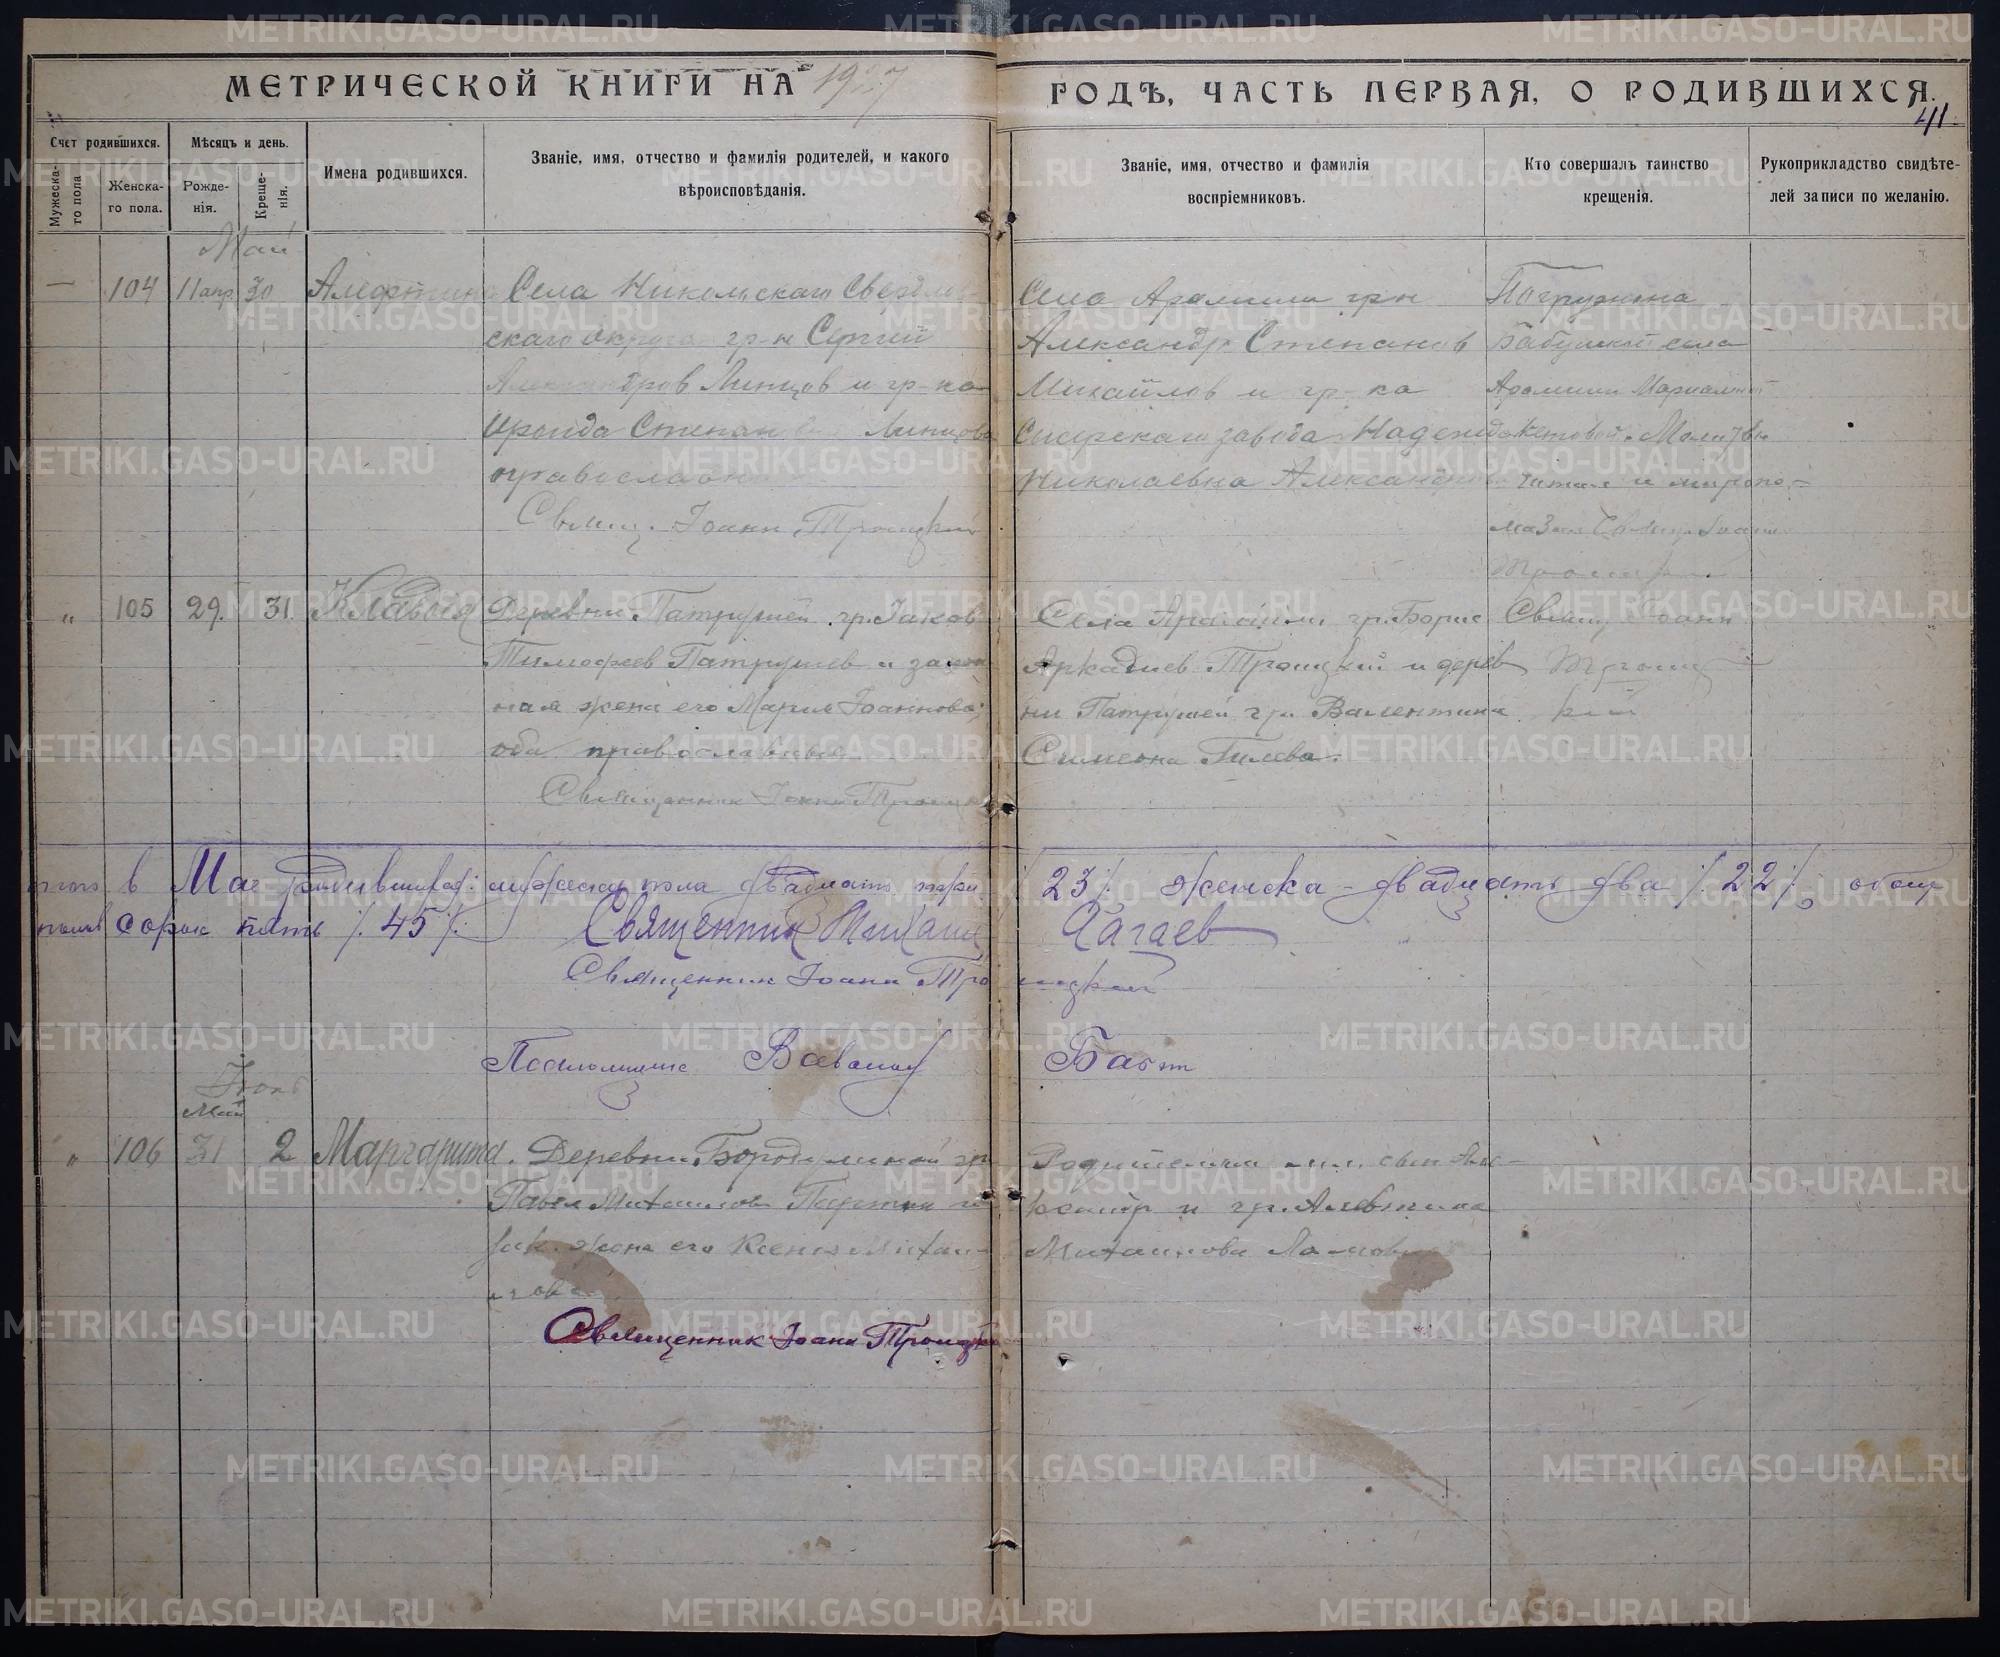 МЕТРИЧЕСКОЙ КНИГИ НА 1927
ГОДЪ, ЧАСТЬ ПЕРВАЯ, О РОДИВШИХСЯ.
41.
Счет родившихся.
Мѣсяцъ и день.
Имена родившихся.
Званіе, имя, отчество и фамилія родителей, и какого
вѣроисповѣданія.
Мужеска-
го пола
Женска-
го пола.
Рожде-
нія.
Креще-
нія.
Званіе, имя, отчество и фамилія
воспріемниковъ.
Кто совершалъ таинство
крещенія.
Рукоприкладство свидѣте-
лей записи по желанію.
Май
— 104 11 апр. 30 Алефтина
Села Никольскаго Свердлов-
скаго округа гр-н Сергий
Александров Линцов и гр-ка
Ираида Степан Линцова
православн
Свящ. Іоанн Троицкий
Села Арамили гр-н
Александр Степанов
Михайлов и гр-ка
Сысерскаго завода Надежда
Николаевна Александр
Погружена
Бабушкой села
Арамили
Молитвы
читал и миропо-
мазал Свящ. Іоанн
Троицкий
„ 105 29. 31. Клавдия
Деревни Патрушей гр. Іаков
Тимофеев Патрушев и закон
ная жена его Мария Іоаннова;
оба православные
Священник Іоанн Троицкий
Села Арамили гр. Борис
Аркадиев Троицкий и дерев
ни Патрушей гр. Валентина
Симеона Гилева.
Свящ Іоанн
Троиц
кий
в Мае родившихся: мужеска пола двадцать три /23/. женска – двадцать два /.22/. обоего
полов сорок пять /.45/. Священник Михаил Чагаев
Священник Іоанн Троицкий
Псаломщик Бабт
Іюнь
Май
„ 106 31 2 Маргарита.
Деревни Бородулиной гр
Павел Михаилов Партин и
зак. жена его Ксения Михаи-
лова
Священник Іоанн Троицкий
Родители
и гр. Алевтина
Михаилова
METRIKI.GASO-URAL.RU